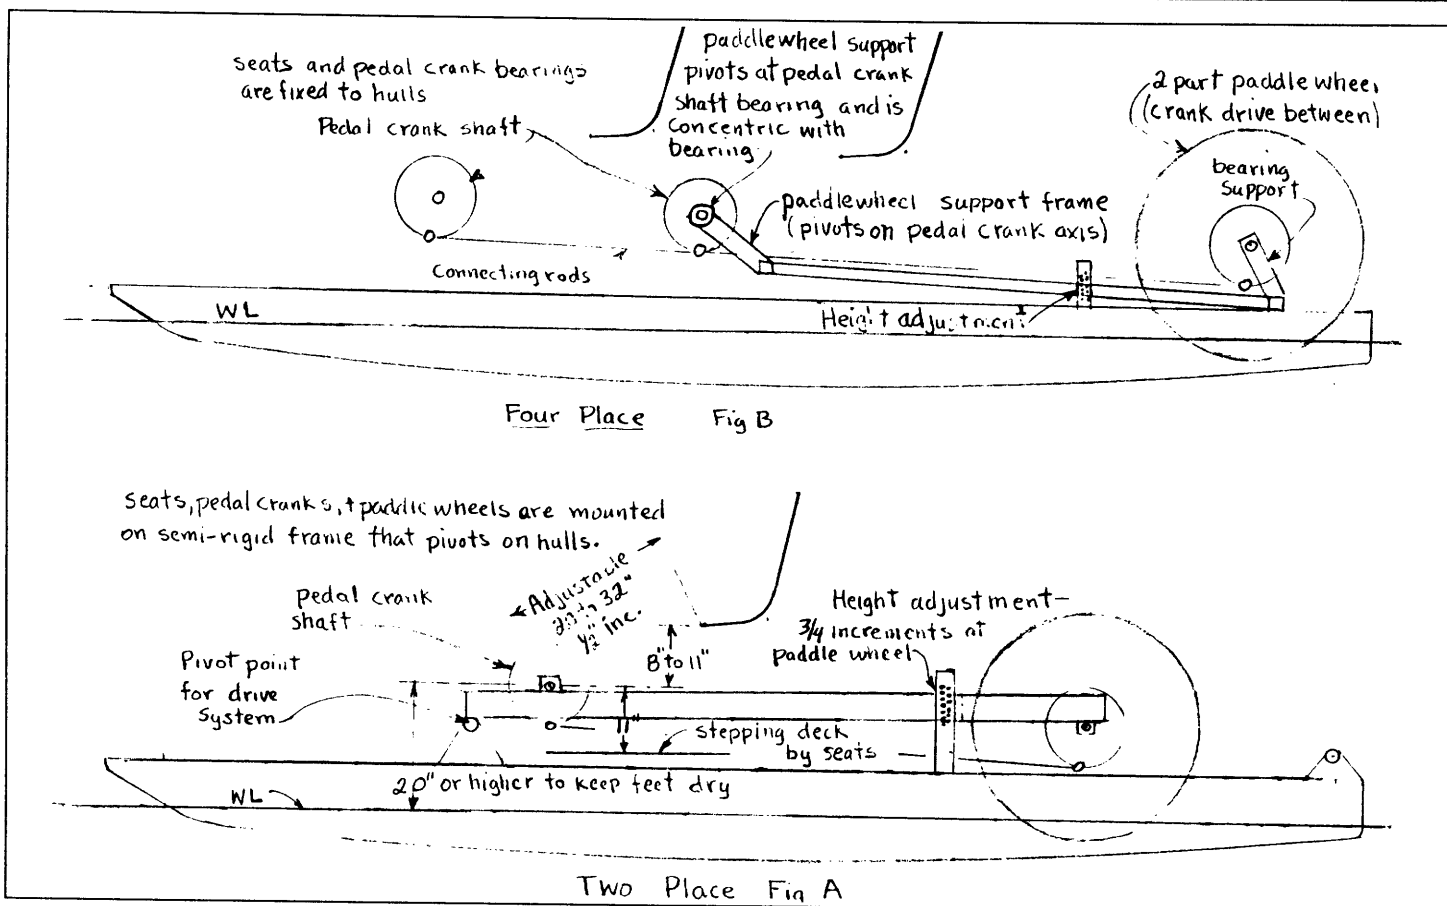 seats and pedal crank bearings
are fixed to hulls
Pedal crank shaft
paddlewheel support
pivots at pedal crank
shaft bearing and is
concentric with
bearing
2 part paddle wheel
(crank drive between)
bearing
support
paddlewheel support frame
(pivots on pedal crank axis)
Connecting rods
WL
Height adjustment
Four Place Fig B
Seats, pedal cranks, + paddle wheels are mounted
on semi-rigid frame that pivots on hulls.
Adjustable
to 32"
1/2" inc.
Pedal crank
shaft
Height adjustment-
3/4 increments at
paddle wheel
8" to 11"
Pivot point
for drive
System
11"
stepping deck
by seats
20" or higher to keep feet dry
WL
Two Place Fig A